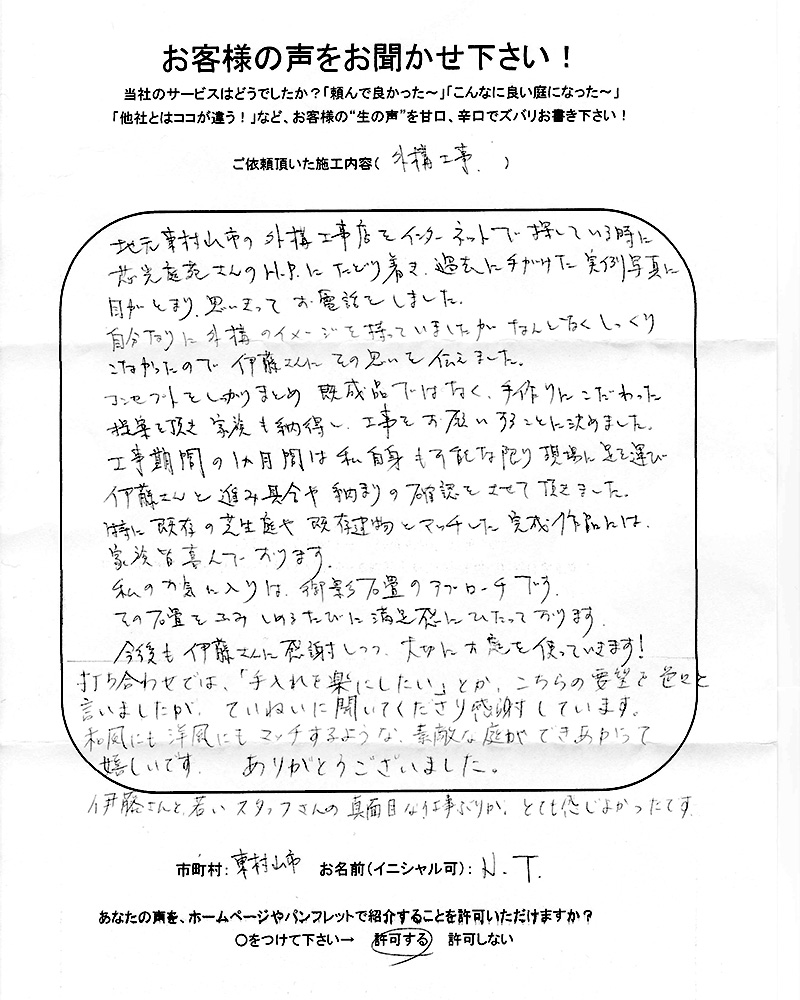 お客様の声をお聞かせ下さい！
当社のサービスはどうでしたか？「頼んで良かった～」「こんなに良い庭になった～」
「他社とはココが違う！」など、お客様の“生の声”を甘口、辛口でズバリお書き下さい！
ご依頼頂いた施工内容（ 外構工事. ）
地元東村山市の外構工事店をインターネットで探している時に
慈光庭苑さんのH.P.にたどり着き、過去に手がけた実例写真に
目がとまり、思いきってお電話をしました。
自分なりに外構のイメージを持っていましたがなんとなくしっくり
こなかったので伊藤さんにその思いを伝えました。
コンセプトをしっかりまとめ既成品ではなく、手作りにこだわった
提案を頂き家族も納得し、工事をお願いすることに決めました。
工事期間の1ヵ月間は私自身も可能な限り現場に足を運び
伊藤さんと進み具合や納まりの確認をさせて頂きました。
特に既存の芝生庭や既存建物とマッチした完成作品には、
家族皆喜んでおります。
私のお気に入りは、御影石畳のアプローチです。
その石畳をふみしめるたびに満足感にひたっております。
今後も伊藤さんに感謝しつつ、大切にお庭を使っていきます！
打ち合わせでは、「手入れを楽にしたい」とか、こちらの要望を色々と
言いましたが、ていねいに聞いてくださり感謝しています。
和風にも洋風にもマッチするような、素敵な庭ができあがって
嬉しいです。 ありがとうございました。
伊藤さんと、若いスタッフさんの真面目な仕事ぶりが、とても感じよかったです。
市町村：東村山市 お名前（イニシャル可）：N.T.
あなたの声を、ホームページやパンフレットで紹介することを許可いただけますか？
○をつけて下さい→ 許可する 許可しない